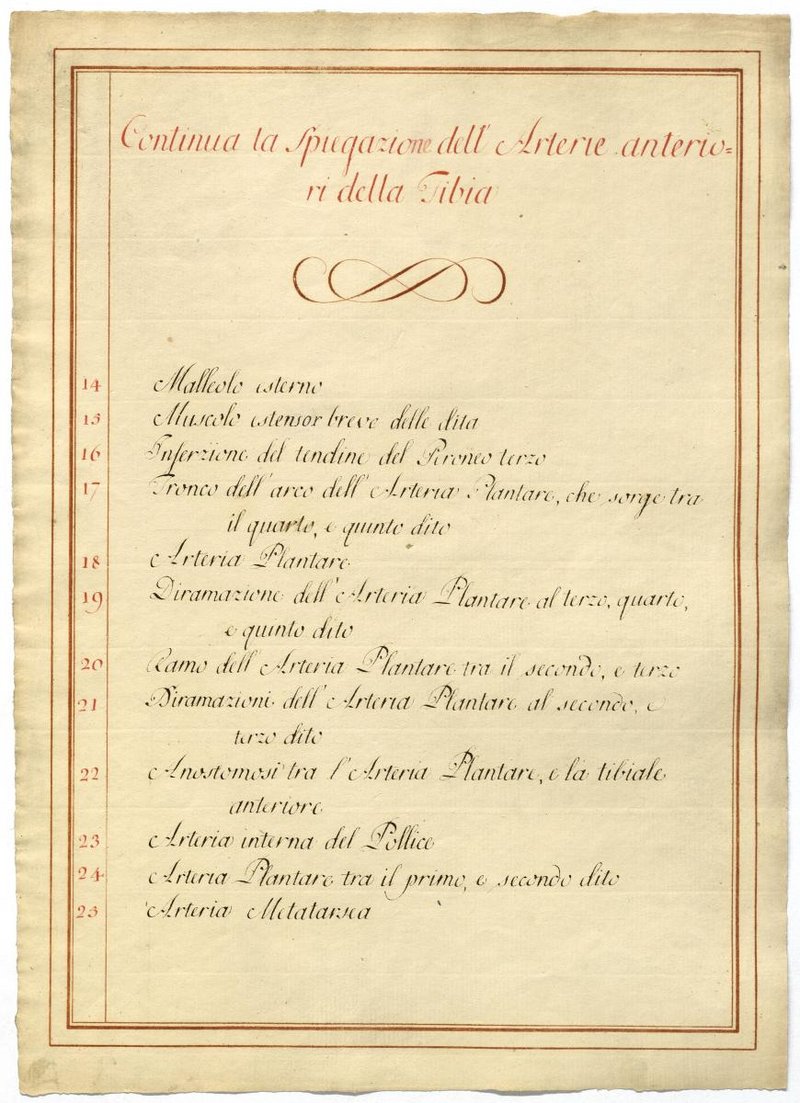 Continua la Spiegazione dell' Arterie anterio=
ri della Tibia
14 Malleolo esterno
15 Muscolo estensor breve delle dita
16 Inserzione del tendine del Peroneo terzo
17 Tronco dell'arco dell'Arteria Plantare, che sorge tra
il quarto, e quinto dito
18 Arteria Plantare
19 Diramazione dell'Arteria Plantare al terzo, quarto,
e quinto dito
20 Ramo dell'Arteria Plantare tra il secondo, e terzo
21 Diramazioni dell'Arteria Plantare al secondo, e
terzo dito
22 Anostomosi tra l'Arteria Plantare, e la tibiale
anteriore
23 Arteria interna del Pollice
24 Arteria Plantare tra il primo, e secondo dito
25 Arteria Metatarsea